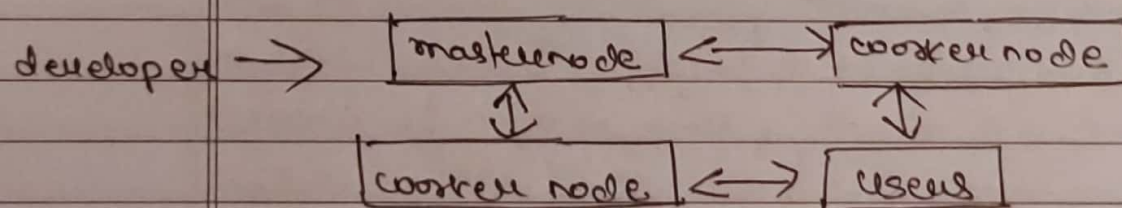 developer → masternode ↔ worker node
worker node ↔ users